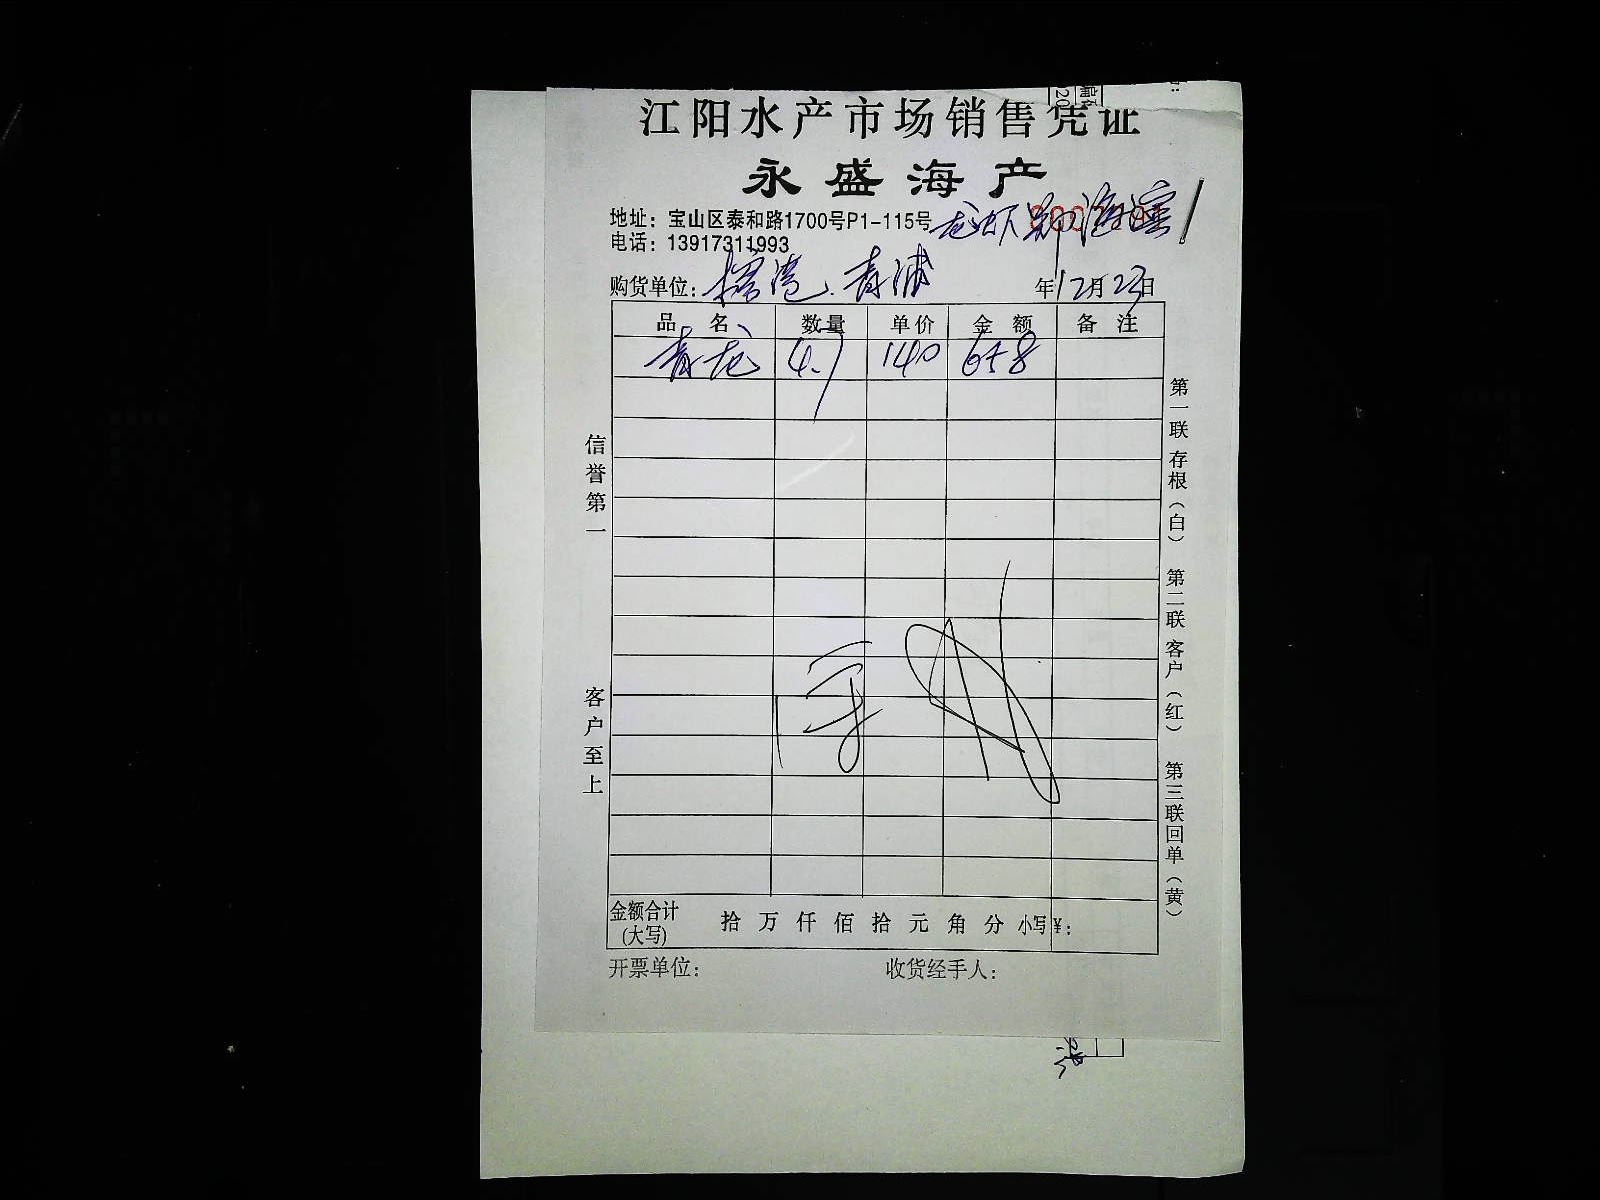 江阳水产市场销售凭证
永盛海产
地址：宝山区泰和路1700号P1-115号 龙虾
电话：13917311993
购货单位： 青浦 年12月23日
品名 数量 单价 金额 备注
青龙 4.7 140 658
信誉第一
客户至上
第一联 存根（白） 第二联 客户（红） 第三联 回单（黄）
金额合计(大写) 拾 万 仟 佰 拾 元 角 分 小写¥：
开票单位： 收货经手人：